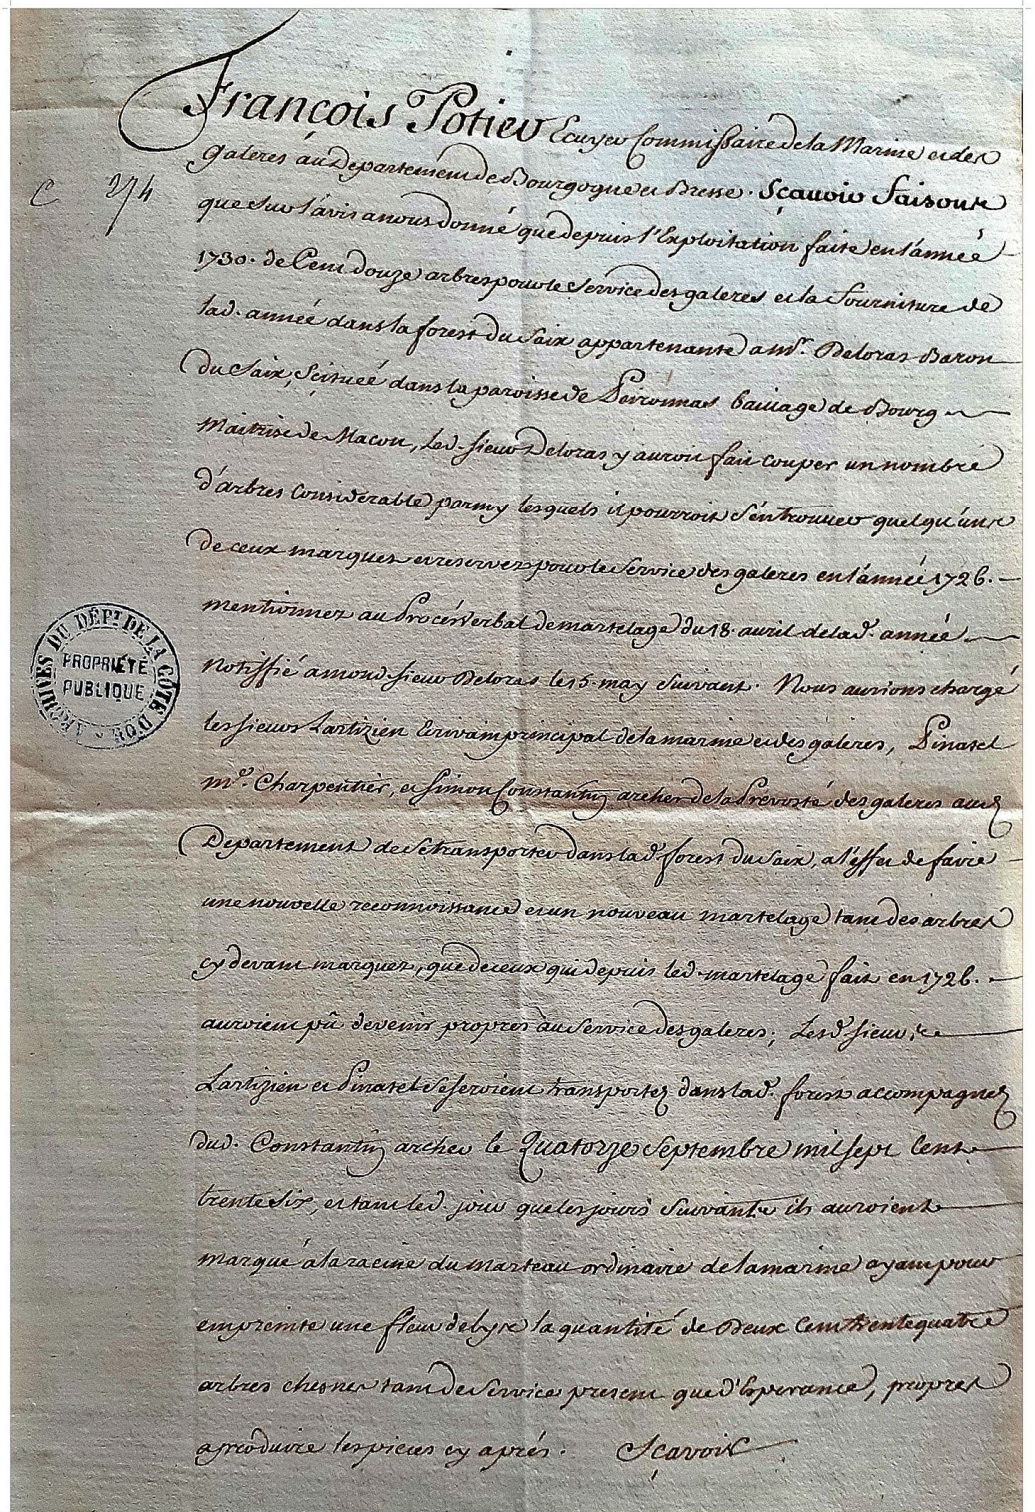 François Potier Ecuyer Commissaire de la Marine et des
Galeres au Departement de Bourgogne et Bresse. Sçavoir faisons
C 274
que sur l'avis a nous donné que depuis l'Exploitation faite en l'année
1730. de Cent douze arbres pour le service des galeres et la fourniture de
lad. année dans la forest du Saix appartenante a Mr. Deloras Baron
du Saix, scituée dans la paroisse de Peironnas bailliage de Bourg
Maitrise de Macon, led. sieur Deloras y auroit fait couper un nombre
d'arbres considerable parmy lesquels il pourroit s'en trouver quelqu'uns
de ceux marques et reservez pour le service des galeres en l'année 1726.
mentionnez au Procés Verbal de martelage du 18. avril de lad. année
Notiffié a mond. sieur Deloras le 15. may suivant. Nous aurions chargé
les sieurs Lartizien Ecrivain principal de la marine et des galeres, Pinatel
me. Charpentier, et Simon Constantin archer de la Prevosté des galeres aud.
Departement de se transporter dans lad. forest du Saix, a l'effet de faire
une nouvelle reconnoissance et un nouveau martelage tant des arbres
cy devant marquez, que de ceux qui depuis led. martelage fait en 1726.
auroient pû devenir propres au service des galeres; Lesd. sieurs
Lartizien et Pinatel se seroient transportez dans lad. forest accompagnez
dud. Constantin archer le Quatorze Septembre mil sept cent
trente six, et tant led. jour que les jours suivants ils auroient
marqué à la racine du marteau ordinaire de la marine ayant pour
empreinte une fleur de lys la quantité de Deux Cent trente quatre
arbres chesnes tant de Service present que d'Esperance, propres
a produire les pieces cy aprés. Sçavoir
ARCHIVES DU DÉPT. DE LA CÔTE D'OR
PROPRIÉTÉ
PUBLIQUE